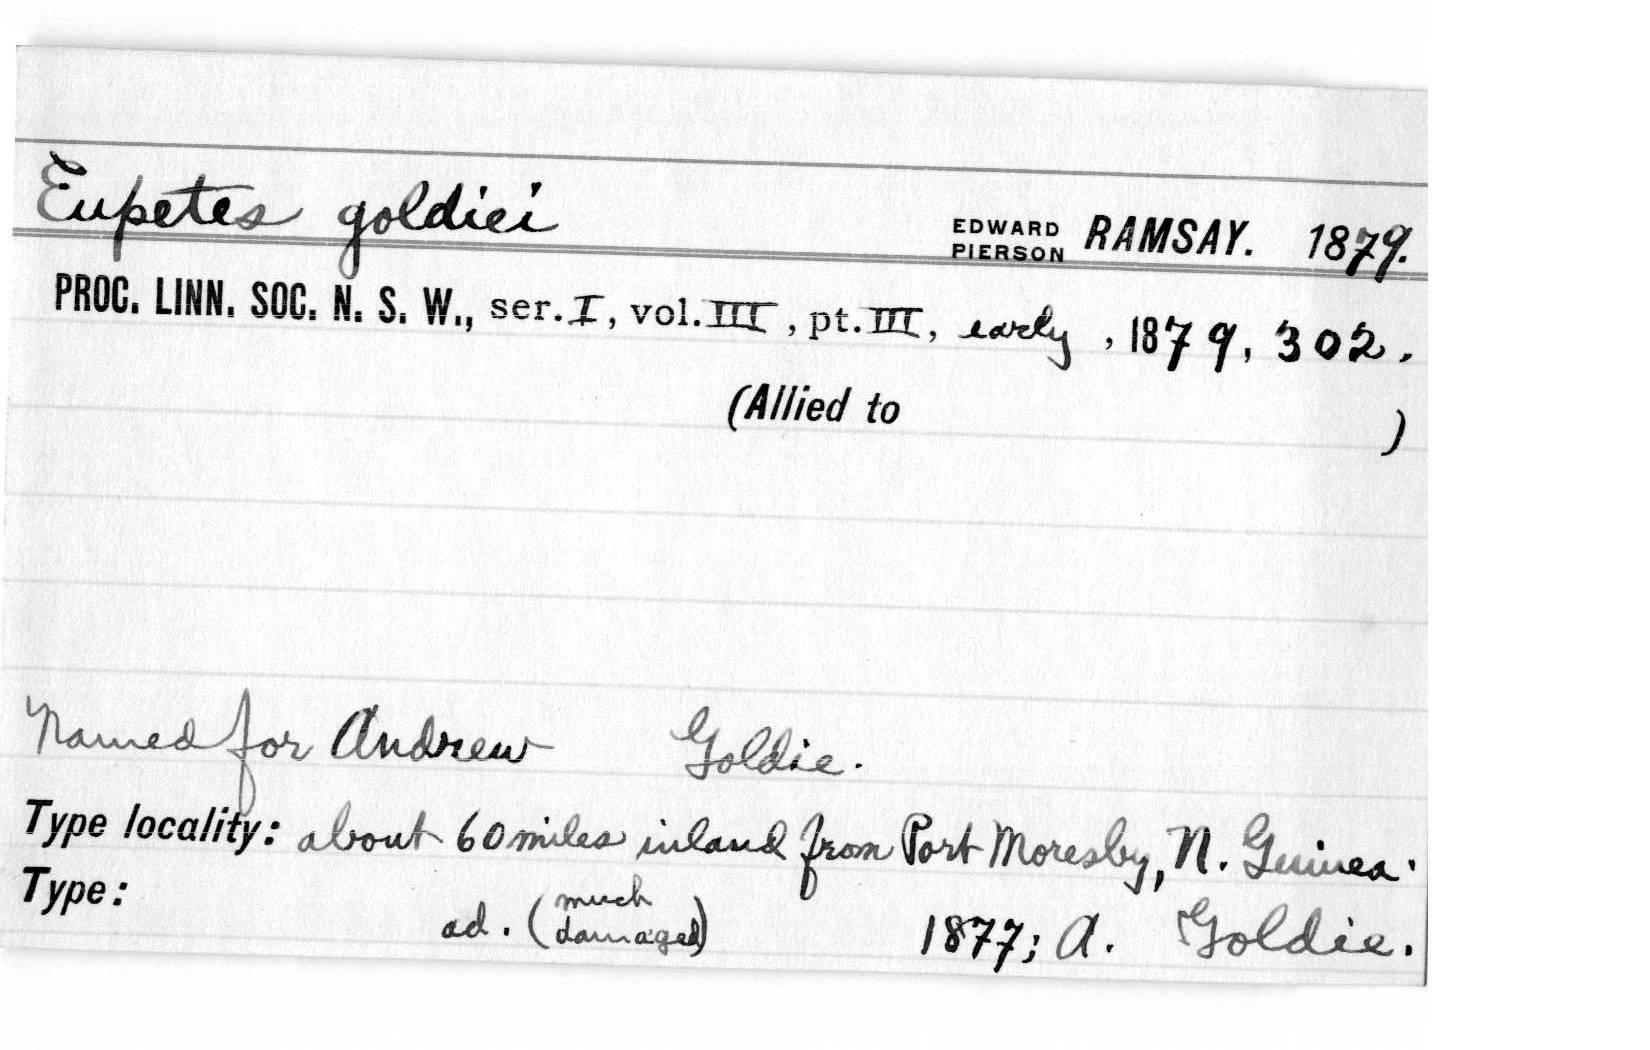 Eupetes goldiei EDWARD PIERSON RAMSAY. 1879.
PROC. LINN. SOC. N. S. W., ser. I, vol. III, pt. III, early, 1879, 302.
(Allied to )
Named for Andrew Goldie.
Type locality: about 60 miles inland from Port Moresby, N. Guinea.
Type:
ad. (much damaged) 1877; A. Goldie.